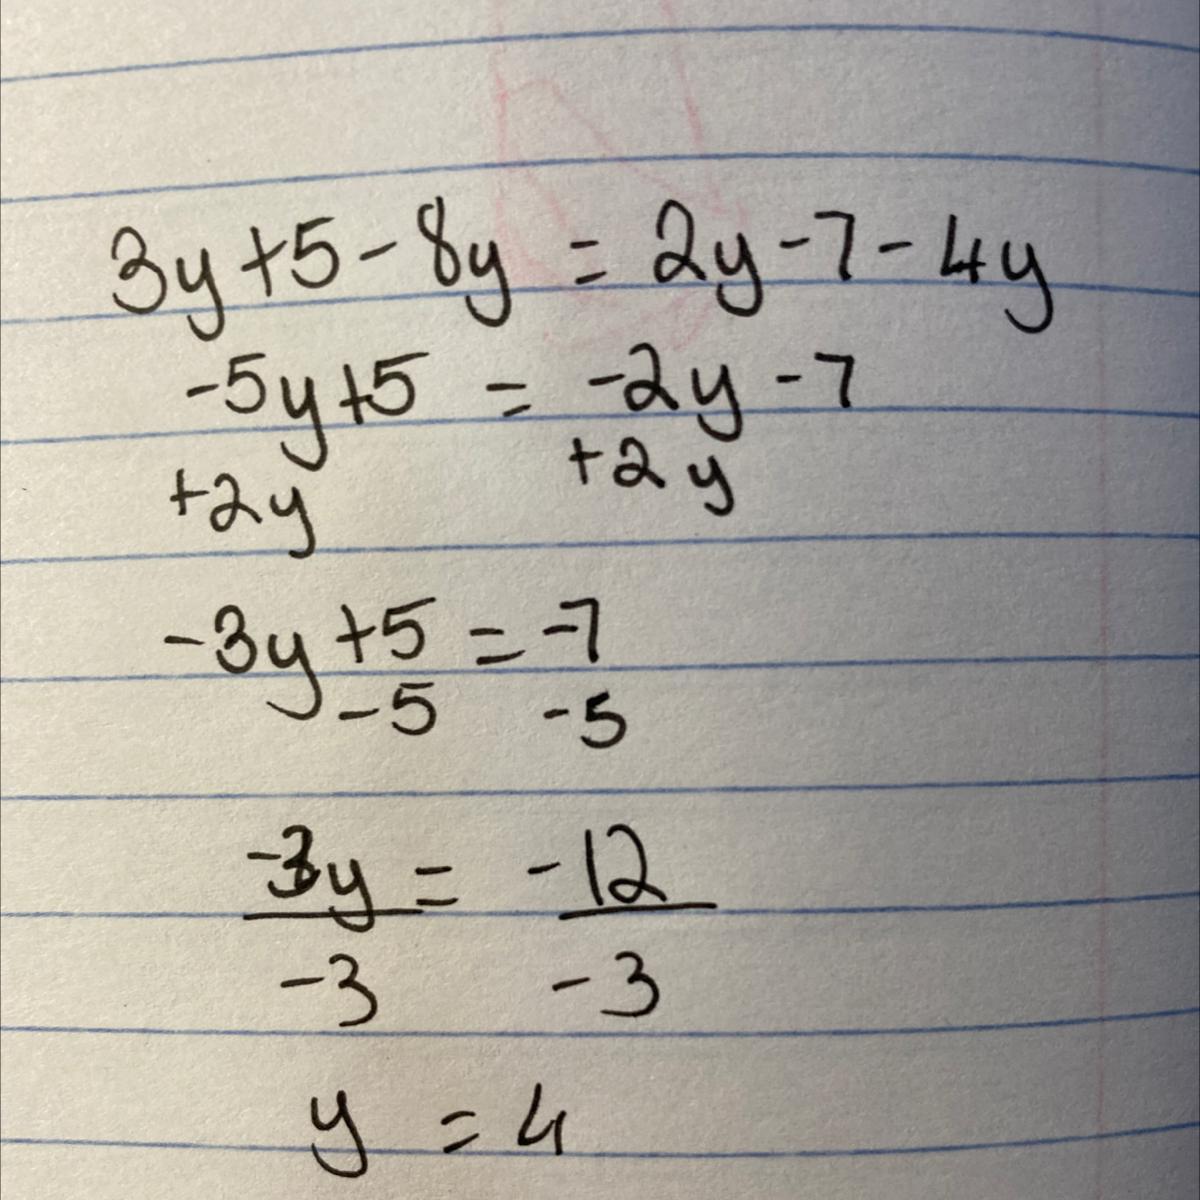 3y+5-8y = 2y-7-4y
-5y+5 = -2y-7
+2y +2y
-3y+5 = -7
-5 -5
-3y = -12
-3 -3
y = 4